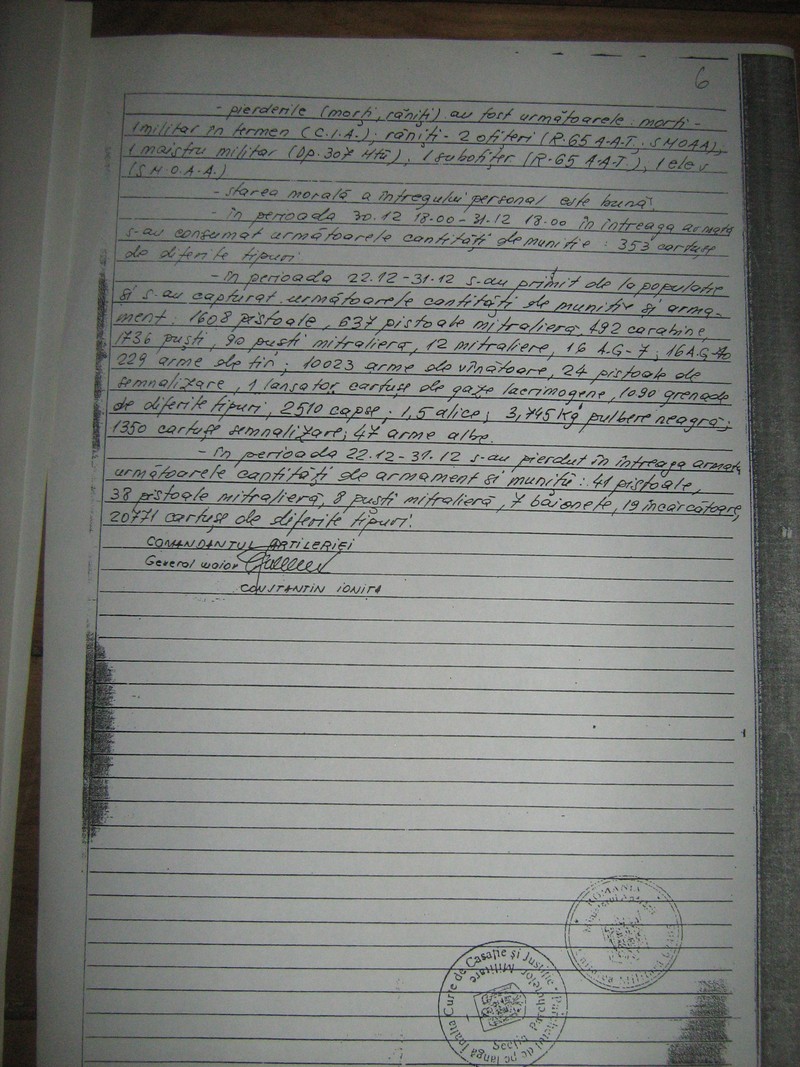 6
- pierderile (morți, răniți) au fost următoarele: morți -
1 militar în termen (C.I.A.); răniți - 2 ofițeri (R. 65 A.A.T. SMOAA),
1 maistru militar (Dp. 307 Mtз), 1 subofițer (R-65 A.A.T.), 1 elev
(S M O.A.A.)
- starea morală a întregului personal este bună.
- în perioada 30.12 18.00-31.12 18.00 în întreaga armată
s-au consumat următoarele cantități de muniție: 353 cartușe
de diferite tipuri
- în perioada 22.12-31.12 s-au primit de la populație
și s-au capturat următoarele cantități de muniție și arma-
ment: 1608 pistoale, 637 pistoale mitralieră, 492 carabine,
1736 puști, 90 puști mitralieră, 12 mitraliere, 16 A.G-7; 16 A.G-
229 arme de tir; 10023 arme de vînătoare, 24 pistoale de
semnalizare, 1 lansator cartușe de gaze lacrimogene, 1090 grenade
de diferite tipuri, 2510 capse; 1,5 alice; 3,745 Kg pulbere neagră;
1350 cartușe semnalizare; 47 arme albe.
- în perioada 22.12-31.12 s-au pierdut în întreaga armată
următoarele cantități de armament și muniții: 41 pistoale,
38 pistoale mitralieră, 8 puști mitralieră, 7 baionete, 19 încărcătoare,
20771 cartușe de diferite tipuri.
COMANDANTUL ARTILERIEI
General maior
CONSTANTIN IONIȚĂ
ROMANIA
Înalta Curte de Casație și Justiție - Parchetul de pe lângă
Secția Parchetelor Militare